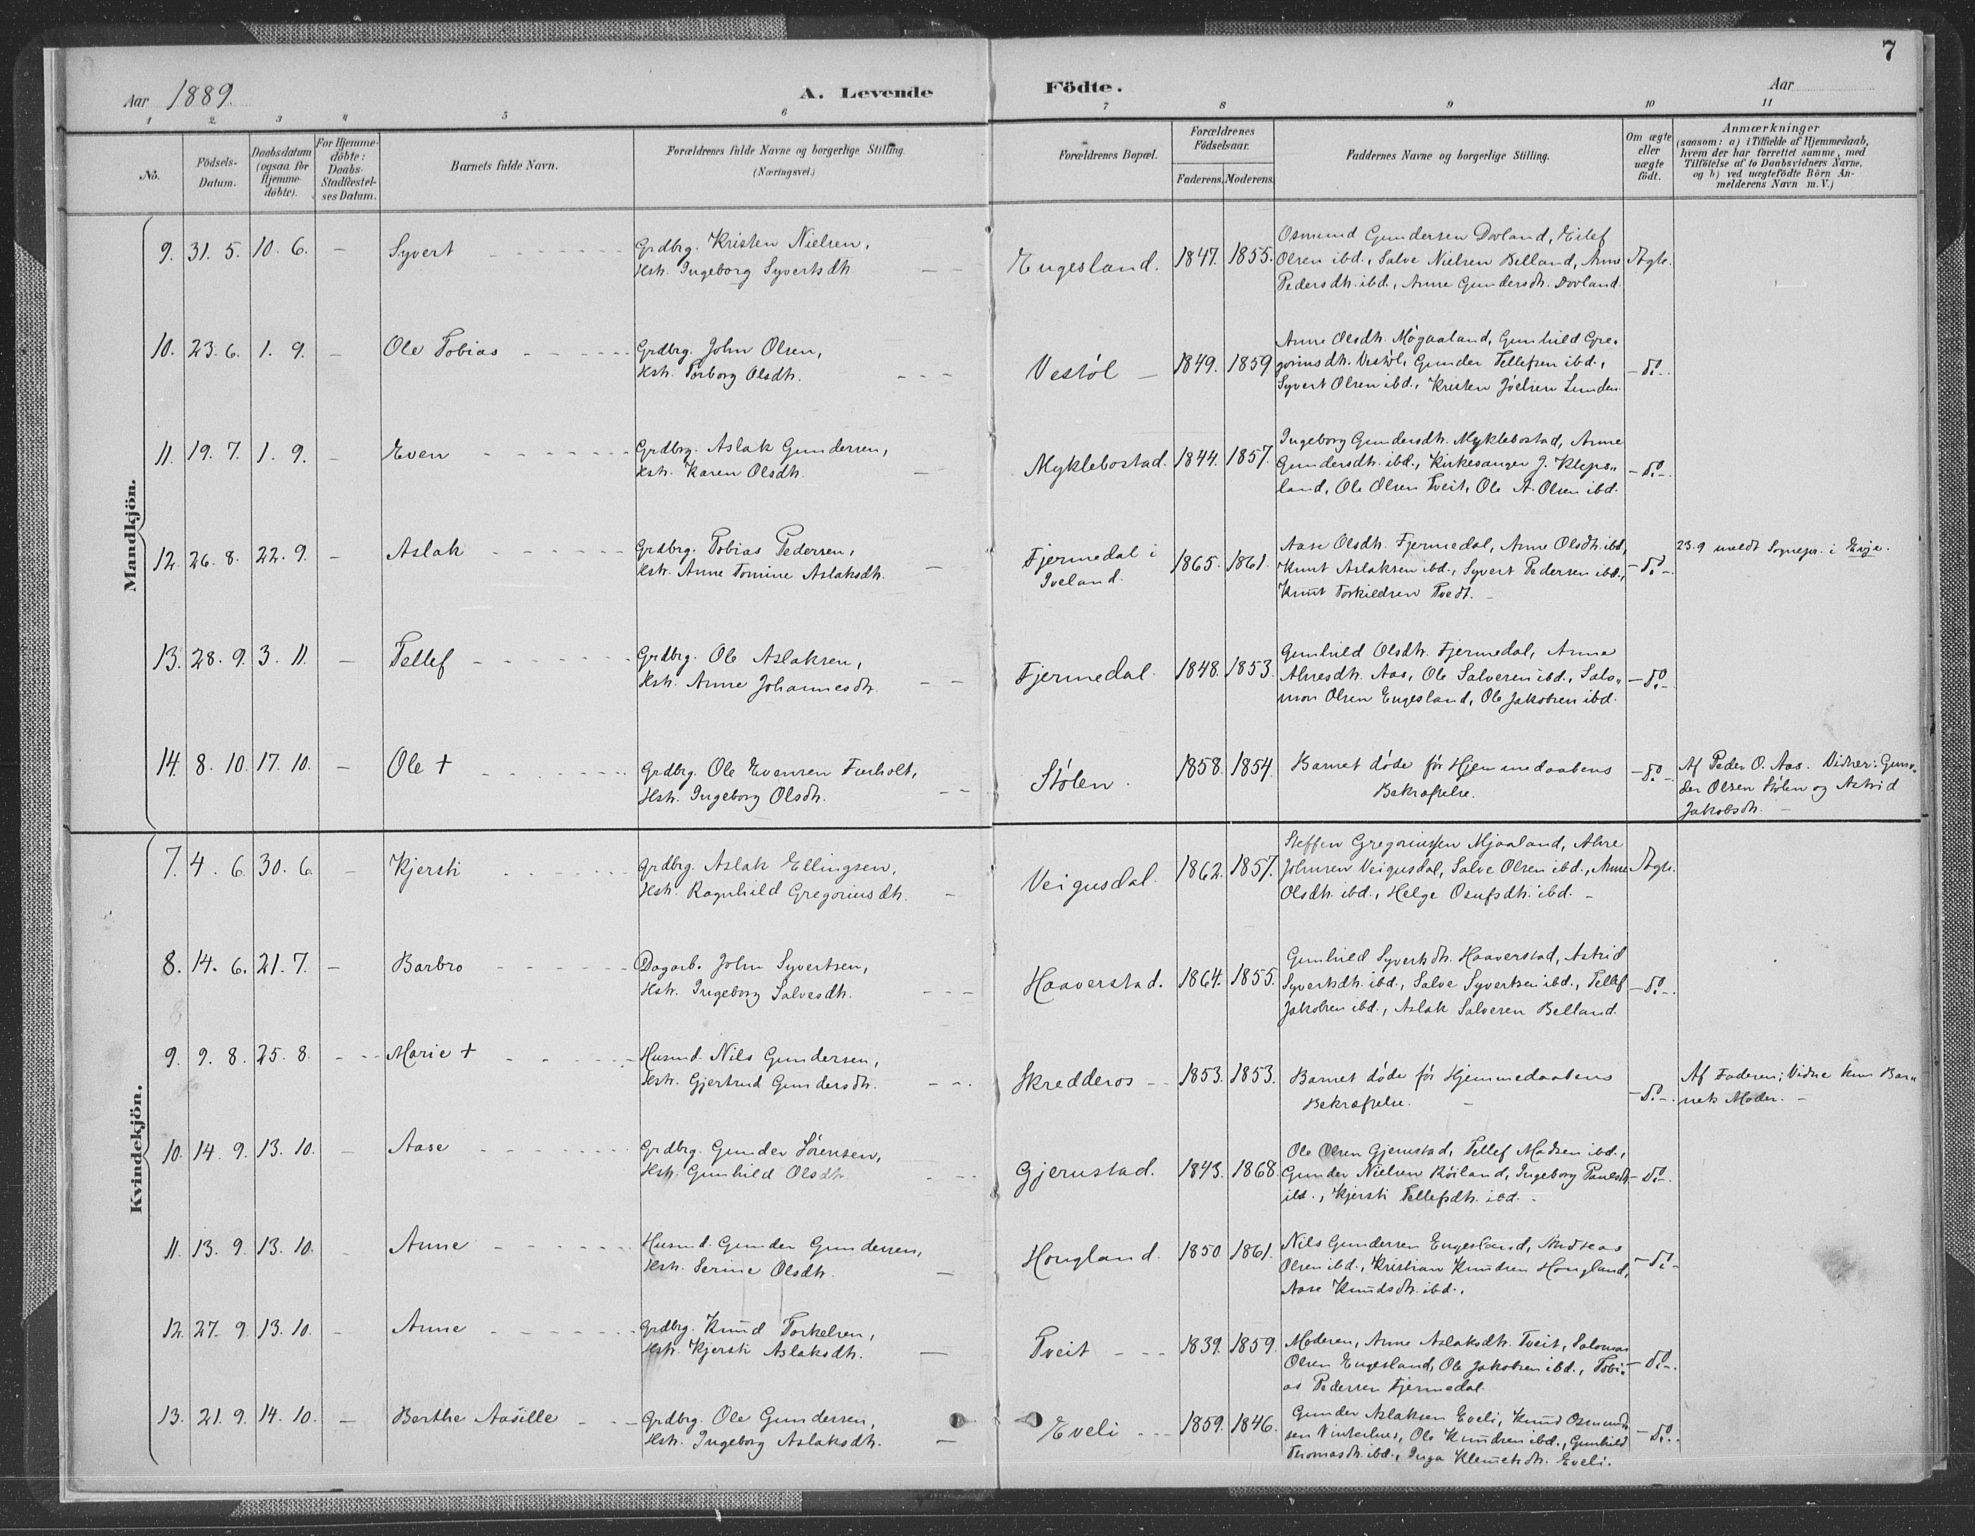 7
Aar 1889.
A. Levende Födte.
Aar
1 2 3 4 5 6 7 8 9 10 11
No.
Födsels-Datum.
Daabsdatum (ogsaa for Hjemmedöbte).
For Hjemmedöbte: Daabs-Stadfæstelses Datum.
Barnets fulde Navn.
Forældrenes fulde Navne og borgerlige Stilling. (Næringsvei.)
Forældrenes Bopæl.
Forældrenes Födselsaar.
Faderens. Moderens.
Faddernes Navne og borgerlige Stilling.
Om ægte eller uægte födt.
Anmærkninger
(saasom: a) i Tilfælde af Hjemmedaab, hvem der har forrettet samme, med Tilföielse af to Daabsvidners Navne, og b) ved uægtefödte Börn Anmelderens Navn m. V.)
Mandkjön.
9. 31. 5. 10. 6. – Syvert Grdbrg. Kristen Nielsen, Engesland. 1847. 1855. Osmund Gundersen Dovland, Eilef
Hstr. Ingeborg Syvertsdtr. Olsen ibd., Salve Nielsen Belland, Anne Ægte.
Pedersdtr. ibd., Anne Gundersdtr. Dovland.
10. 23. 6. 1. 9. – Ole Tobias Grdbrg. John Olsen, Vestøl – 1849. 1859 Anne Olsdtr. Møgaaland, Gunhild Gre-
Hstr. Torborg Olsdtr. goriusdtr. Vestøl, Gunder Tellefsen ibd., – do –
Syvert Olsen ibd., Kristen Jøelsen Lunden
11. 19. 7. 1. 9. – Even Grdbrg. Aslak Gundersen, Myklebostad. 1844. 1857. Ingeborg Gundersdtr. Myklebostad, Anne
Hstr. Karen Olsdtr. Gundersdtr. ibd., Kirkesanger J. Kleps- – do –
land, Ole Olsen Tveit, Ole A. Olsen ibd.
12. 26. 8. 22. 9. – Aslak Grdbrg. Tobias Pedersen, Fjermedal i Iveland. 1865. 1861. Aase Olsdtr. Fjermedal, Anne Olsdtr. ibd, 23.9 meldt Sognepr. i Evje.
Hstr. Anne Tomine Aslaksdtr. Knut Aslaksen ibd., Syvert Pedersen ibd., – do –
Knut Torkildsen Tvedt. –
13. 28. 9. 3. 11. – Tellef Grdbrg. Ole Aslaksen, Fjermedal. 1848. 1853. Gunhild Olsdtr. Fjermedal, Anne
Hstr. Anne Johannesdtr. Alvesdtr. Aas, Ole Salvesen ibd., Salo- – do –
mon Olsen Engesland, Ole Jakobsen ibd.
14. 8. 10. 17. 10. – Ole + Grdbrg. Ole Evensen Fuholt, Stølen. 1858. 1854. Barnet døde før Hjemmedaabens – do – Af Peder O. Aas. Vidner: Gun-
Hstr. Ingeborg Olsdtr. Bekræftelse. der Olsen Stølen og Astrid
Jakobsdtr. –
Kvindekjön.
7. 4. 6. 30. 6. – Kjersti Grdbrg. Aslak Ellingsen, Veigusdal. 1862. 1857. Steffen Gregoriussen Mjaaland, Alve
Hstr. Ragnhild Gregoriusdtr. Johnsen Veigusdal, Salve Olsen ibd., Anne Ægte.
Olsdtr. ibd., Helge Osufsdtr. ibd. –
8. 14. 6. 21. 7. – Barbro Dagarb. John Syvertsen, Haaverstad. 1864. 1855. Gunhild Syvertsdtr. Haaverstad, Astrid
Hstr. Ingeborg Salvesdtr. Syvertsdtr. ibd., Salve Syvertsen ibd., Tellef – do –
Jakobsen ibd., Aslak Salvesen Belland.
9. 9. 8. 25. 8. – Marie + Husmd. Nils Gundersen, Skredderos – 1853. 1853. Barnet døde før Hjemmedaabens – do – Af Faderen; Vidne kun Bar-
Hstr. Gjertrud Gundersdtr. Bekræftelse. – nets Moder. –
10. 14. 9. 13. 10. – Aase Grdbrg. Gunder Sørensen, Gjerustad. 1843. 1868. Ole Olsen Gjerustad, Tellef Madsen ibd.,
Hstr. Gunhild Olsdtr. Gunder Nielsen Røiland, Ingeborg Paulsdtr. – do –
ibd., Kjersti Tellefsdtr. ibd. –
11. 13. 9. 13. 10. – Anne Husmd. Gunder Gundersen, Hongland. 1850. 1861. Nils Gundersen Engesland, Andreas
Hstr. Serine Olsdtr. Olsen ibd., Kristian Knudsen Hongland, – do –
Aase Knudsdtr. ibd.,
12. 27. 9. 13. 10. – Anne Grdbrg. Knud Torkelsen, Tveit 1839. 1859. Moderen, Anne Aslaksdtr. Tveit, Salomon
Hstr. Kjersti Aslaksdtr. Olsen Engesland, Ole Jakobsen ibd., Tobi- – do –
as Pedersen Fjermedal.
13. 21. 9. 14. 10. – Berthe Aasille Grdbrg. Ole Gundersen, Eveli 1859. 1846. Gunder Aslaksen Eveli, Knud Osmund-
Hstr. Ingeborg Aslaksdtr. sen Vinterlnes, Ole Knudsen ibd., Gunhild – do –
Thomasdtr. ibd., Inga Klemetsdtr. Eveli.